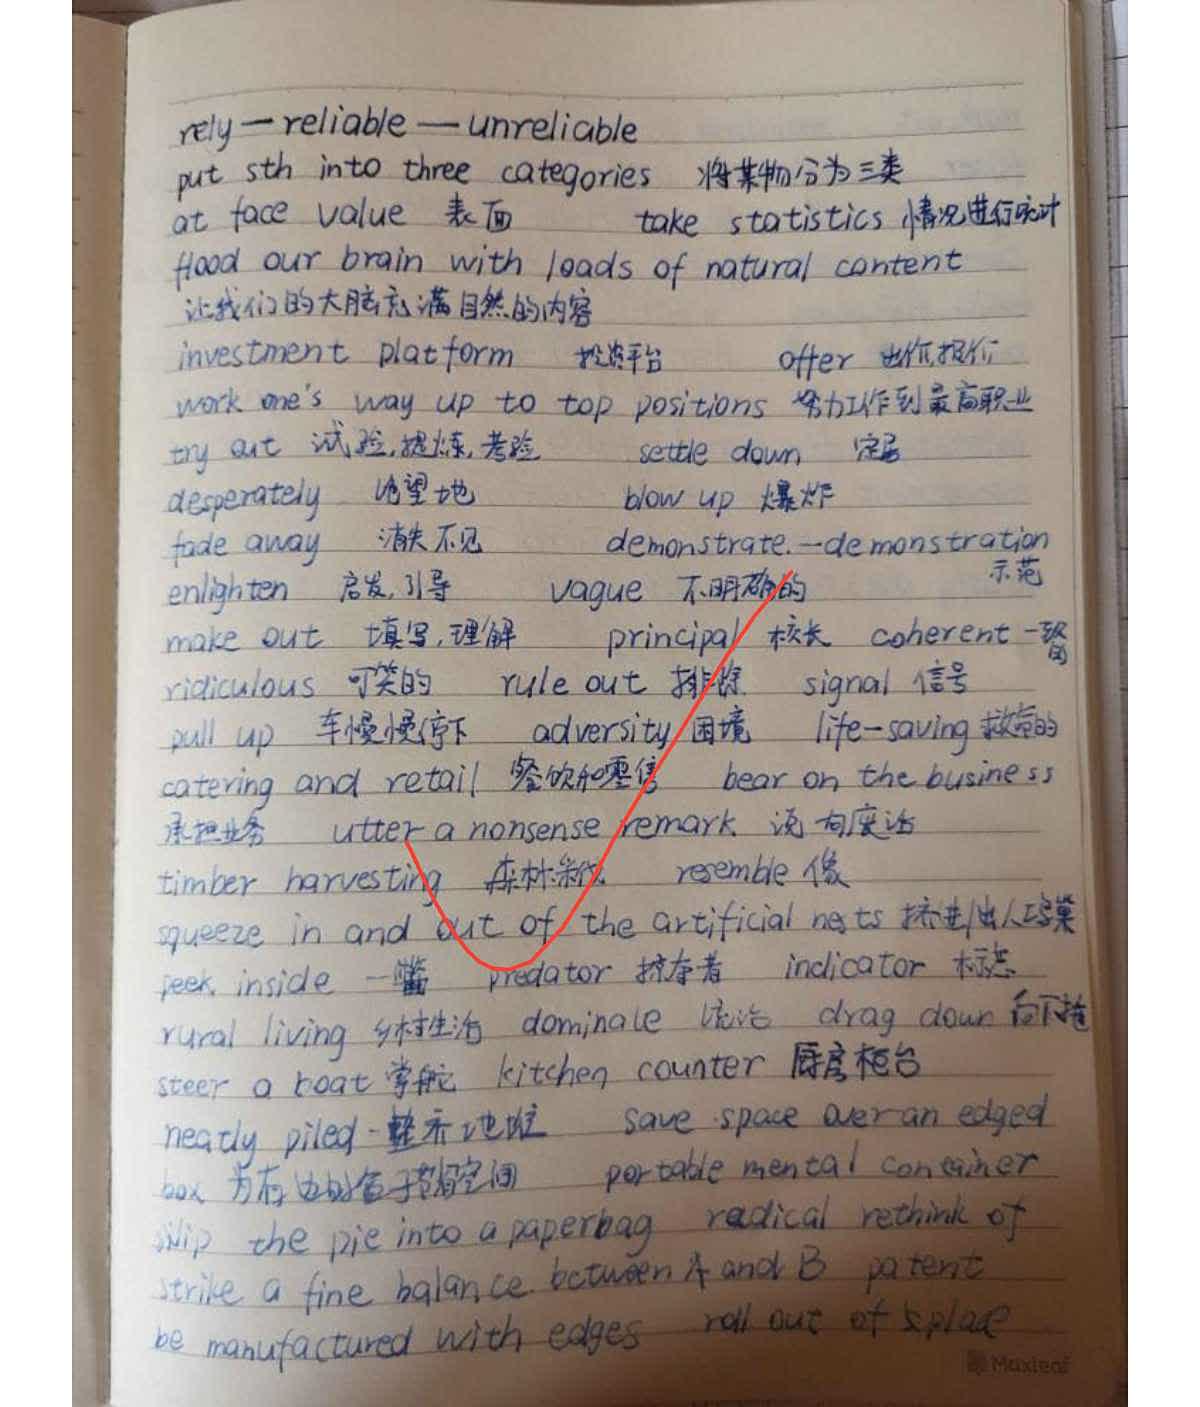 rely — reliable — unreliable
put sth into three categories 将某物分为三类
at face value 表面 take statistics 情况进行统计
flood our brain with loads of natural content
让我们的大脑充满自然的内容
investment platform 投资平台 offer 出价,报价
work one's way up to top positions 努力工作到最高职业
try out 试验,提炼,考验 settle down 定居
desperately 绝望地 blow up 爆炸
fade away 消失不见 demonstrate.—demonstration
示范
enlighten 启发,引导 vague 不明确的
make out 填写,理解 principal 校长 coherent 一致的
ridiculous 可笑的 rule out 排除 signal 信号
pull up 车慢慢停下 adversity 困境 life-saving 救命的
catering and retail 餐饮和零售 bear on the business
承担业务 utter a nonsense remark 说句废话
timber harvesting 森林采伐 resemble 像
squeeze in and out of the artificial nests 挤进/出人工鸟巢
peek inside 一瞥 predator 掠夺者 indicator 标志
rural living 乡村生活 dominale 统治 drag down 向下拖
steer a boat 掌舵 kitchen counter 厨房柜台
neatly piled - 整齐地堆 save space over an edged
box 为有边的盒子节省空间 portable mental container
the pie into a paperbag radical rethink of
strike a fine balance between A and B patent
be manufactured with edges roll out of
Maxleaf